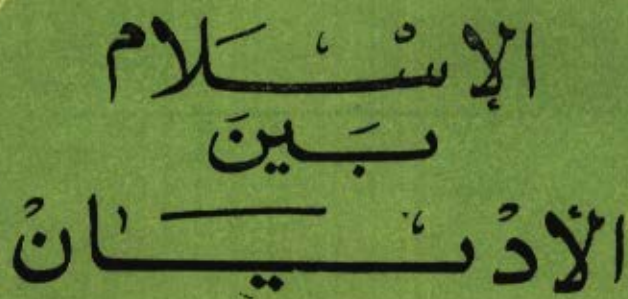 الإسْلَام
بَينَ
الأدْيَانْ